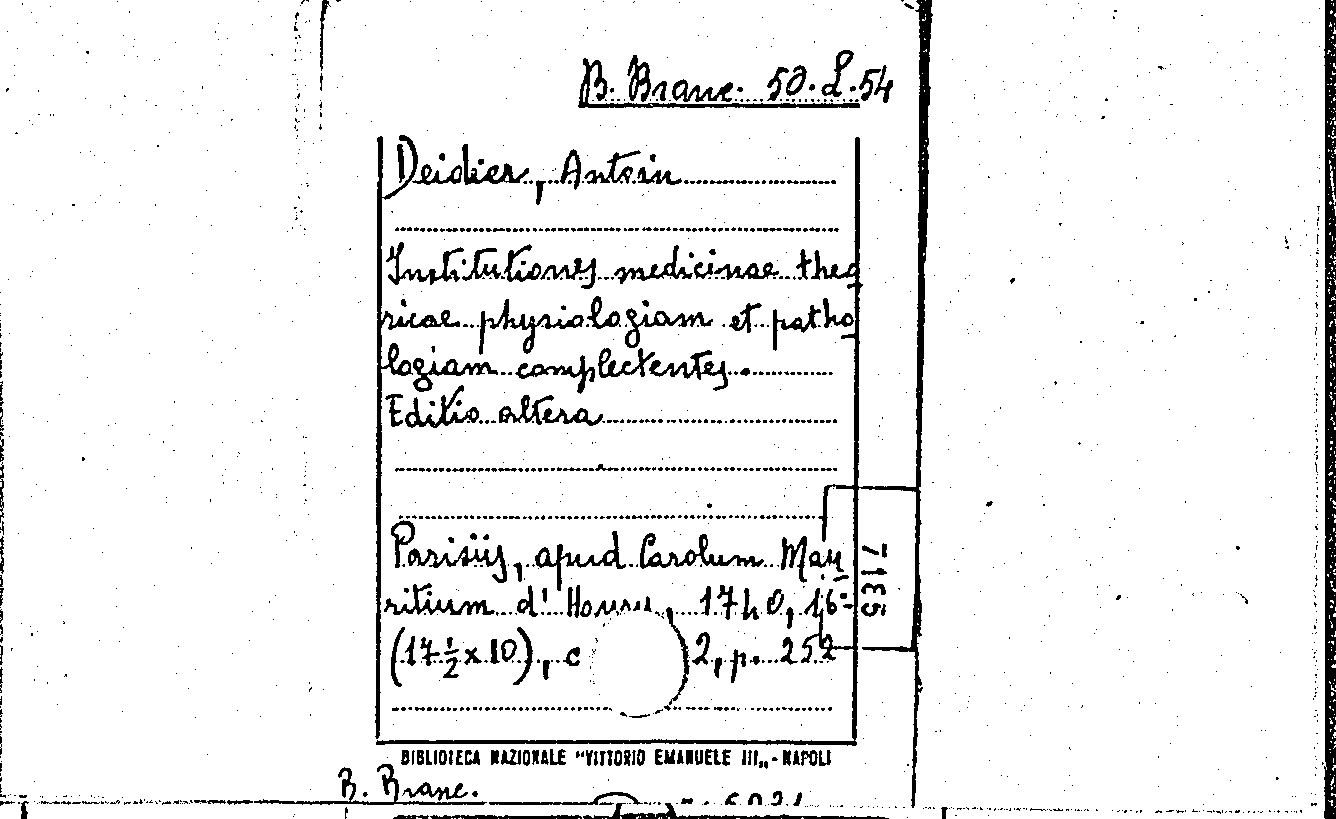 B. Branc. 50. L. 54
Deidier, Antoin
Institutiones medicinae theo
ricae physiologiam et patho
logiam complectentes.
Editio altera
Parisiis, apud Carolum Mau
ritium d'Houry, 1740, 16º
(17 1/2 x 10), c 2, p. 252
7135
BIBLIOTECA NAZIONALE "VITTORIO EMANUELE III„ - NAPOLI
B. Branc.